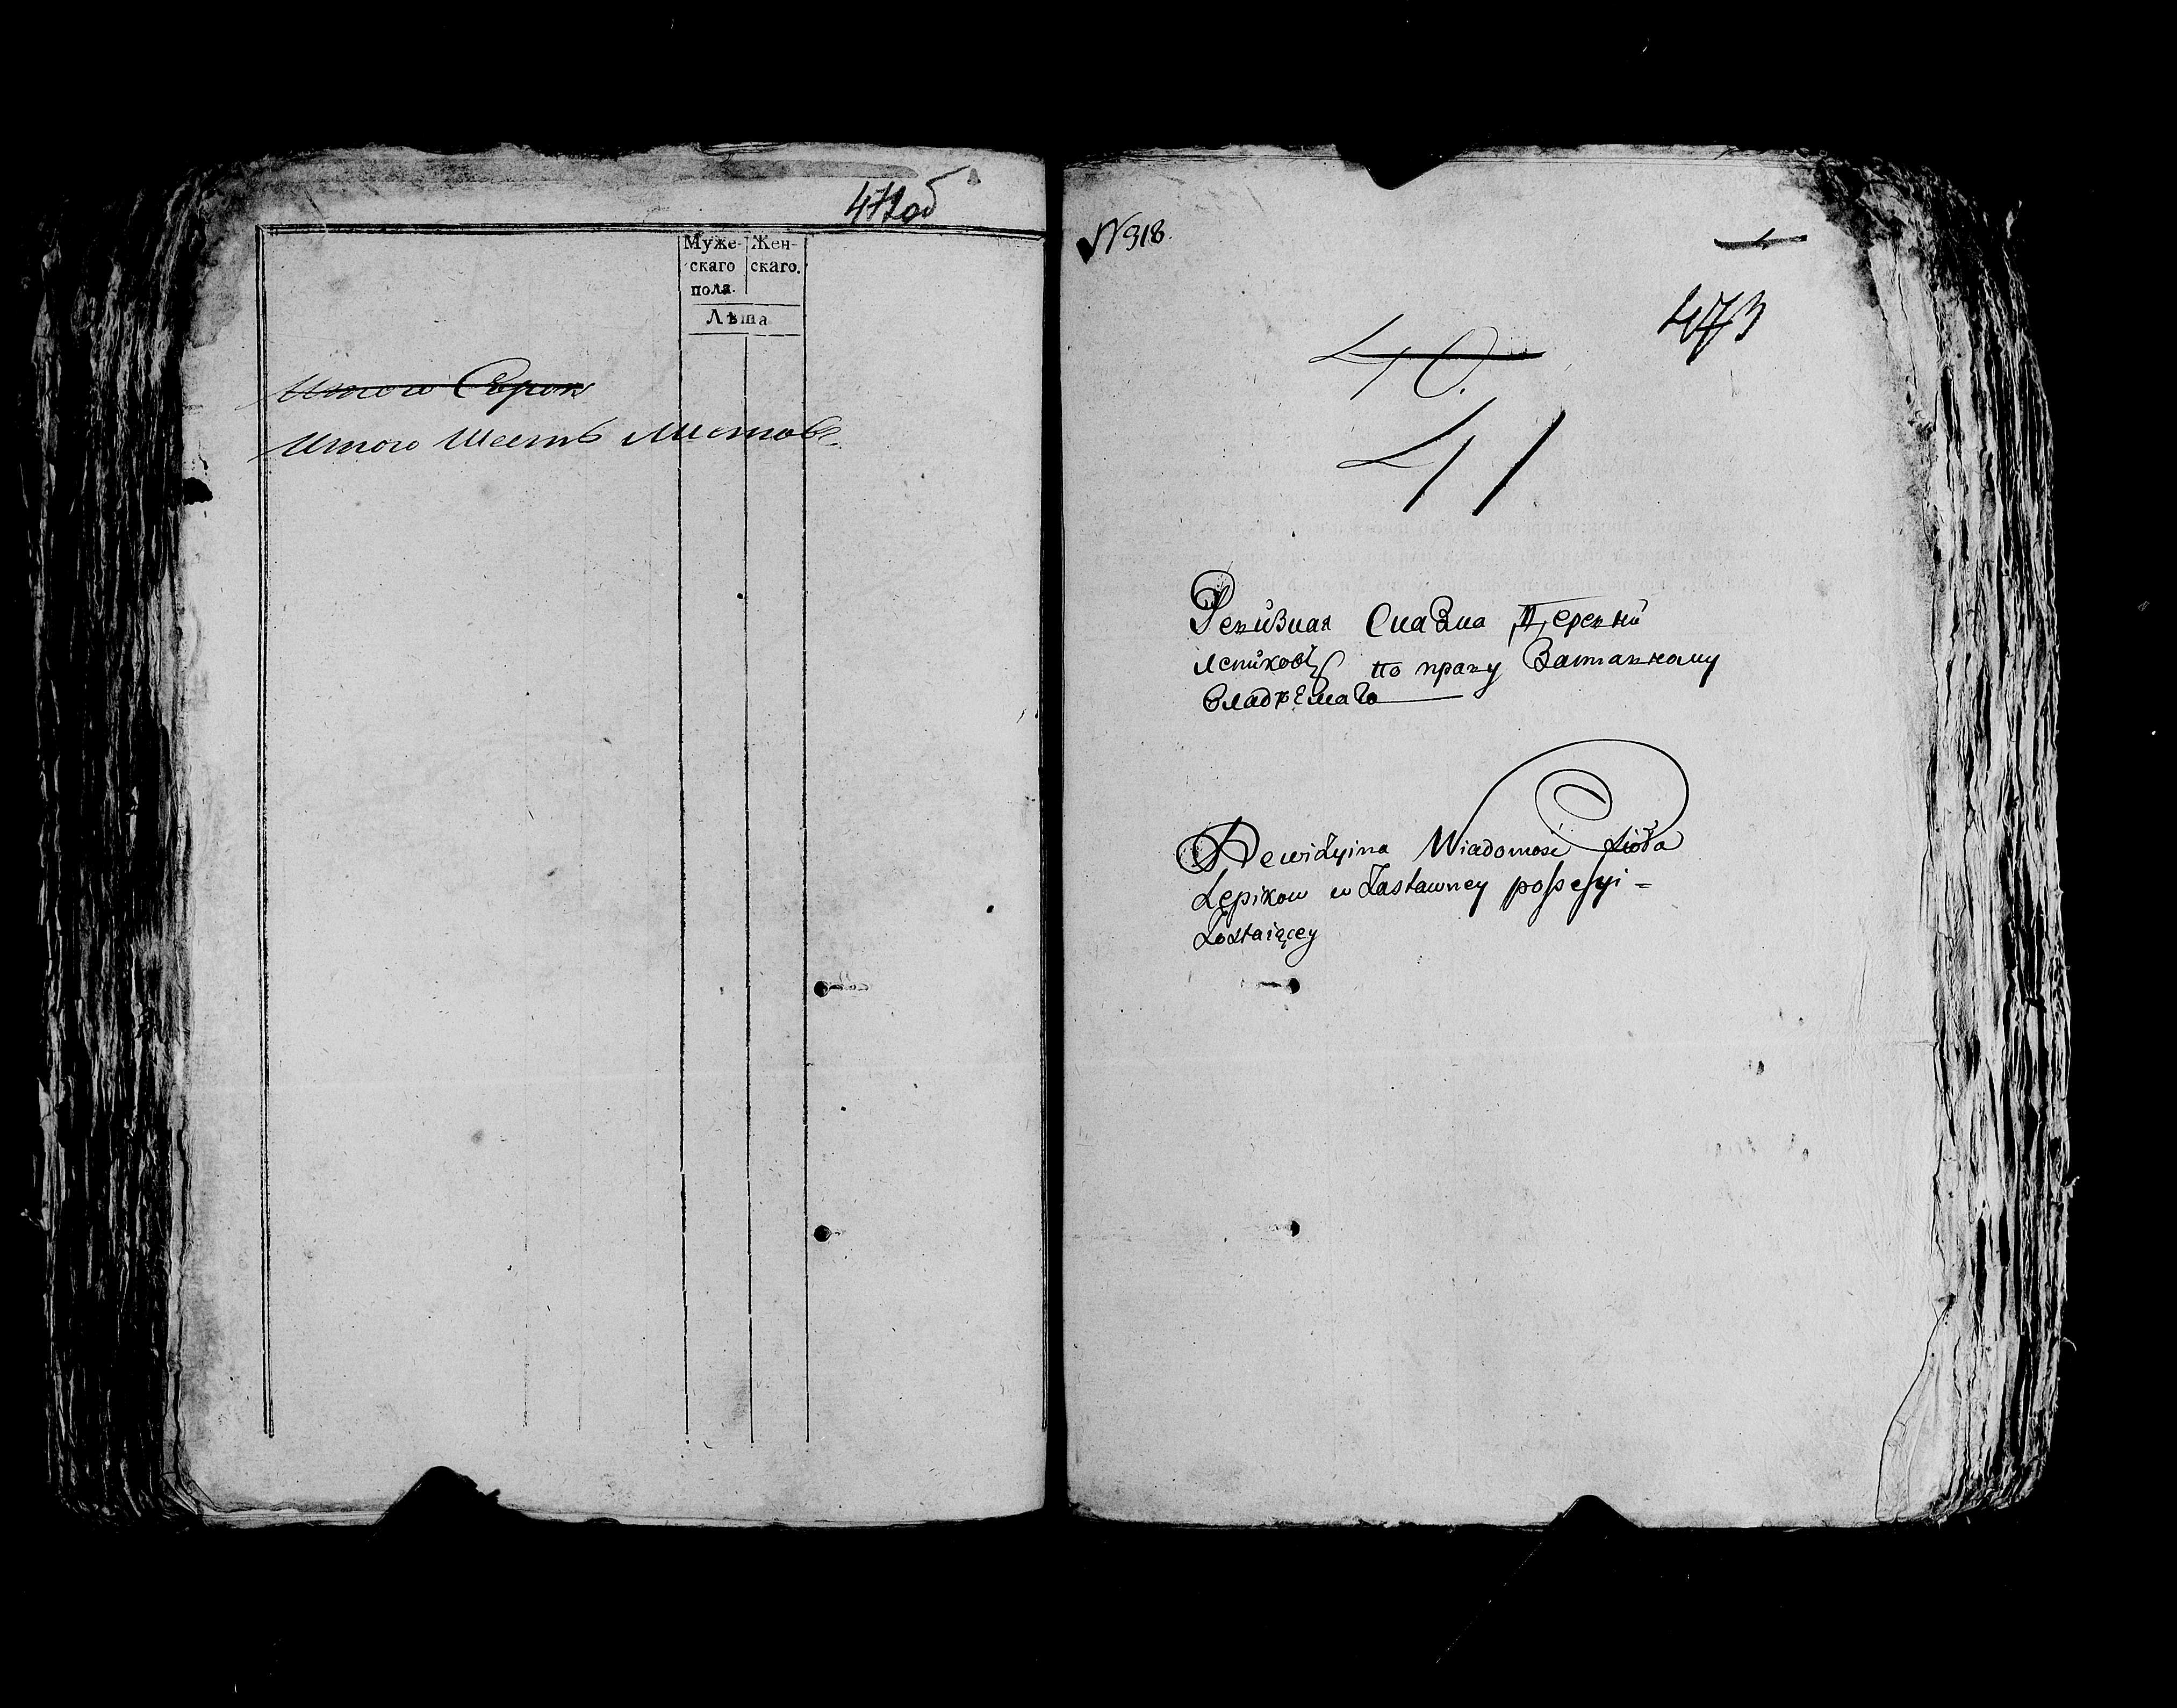 472об
Муже- Жен-
скаго скаго.
пола.
Лѣта
Итого Сорок
Итого Шесть Листовъ
N 918.
473
40.
41
Ревизная Сказка Деревни
по праву Заставному
Владѣемаго
Rewizyina Wiadomość Sioła
Lepikow w Zastawney possessyi =
Zostaiącey